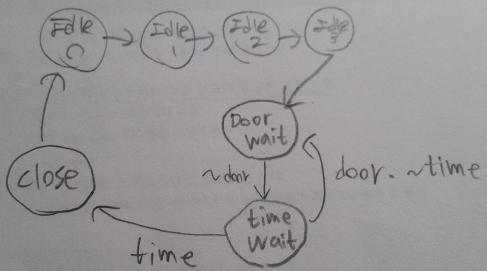 Idle
0
Idle
1
Idle
2
Idle
3
Door
wait
~door
close
door. ~time
time
wait
time